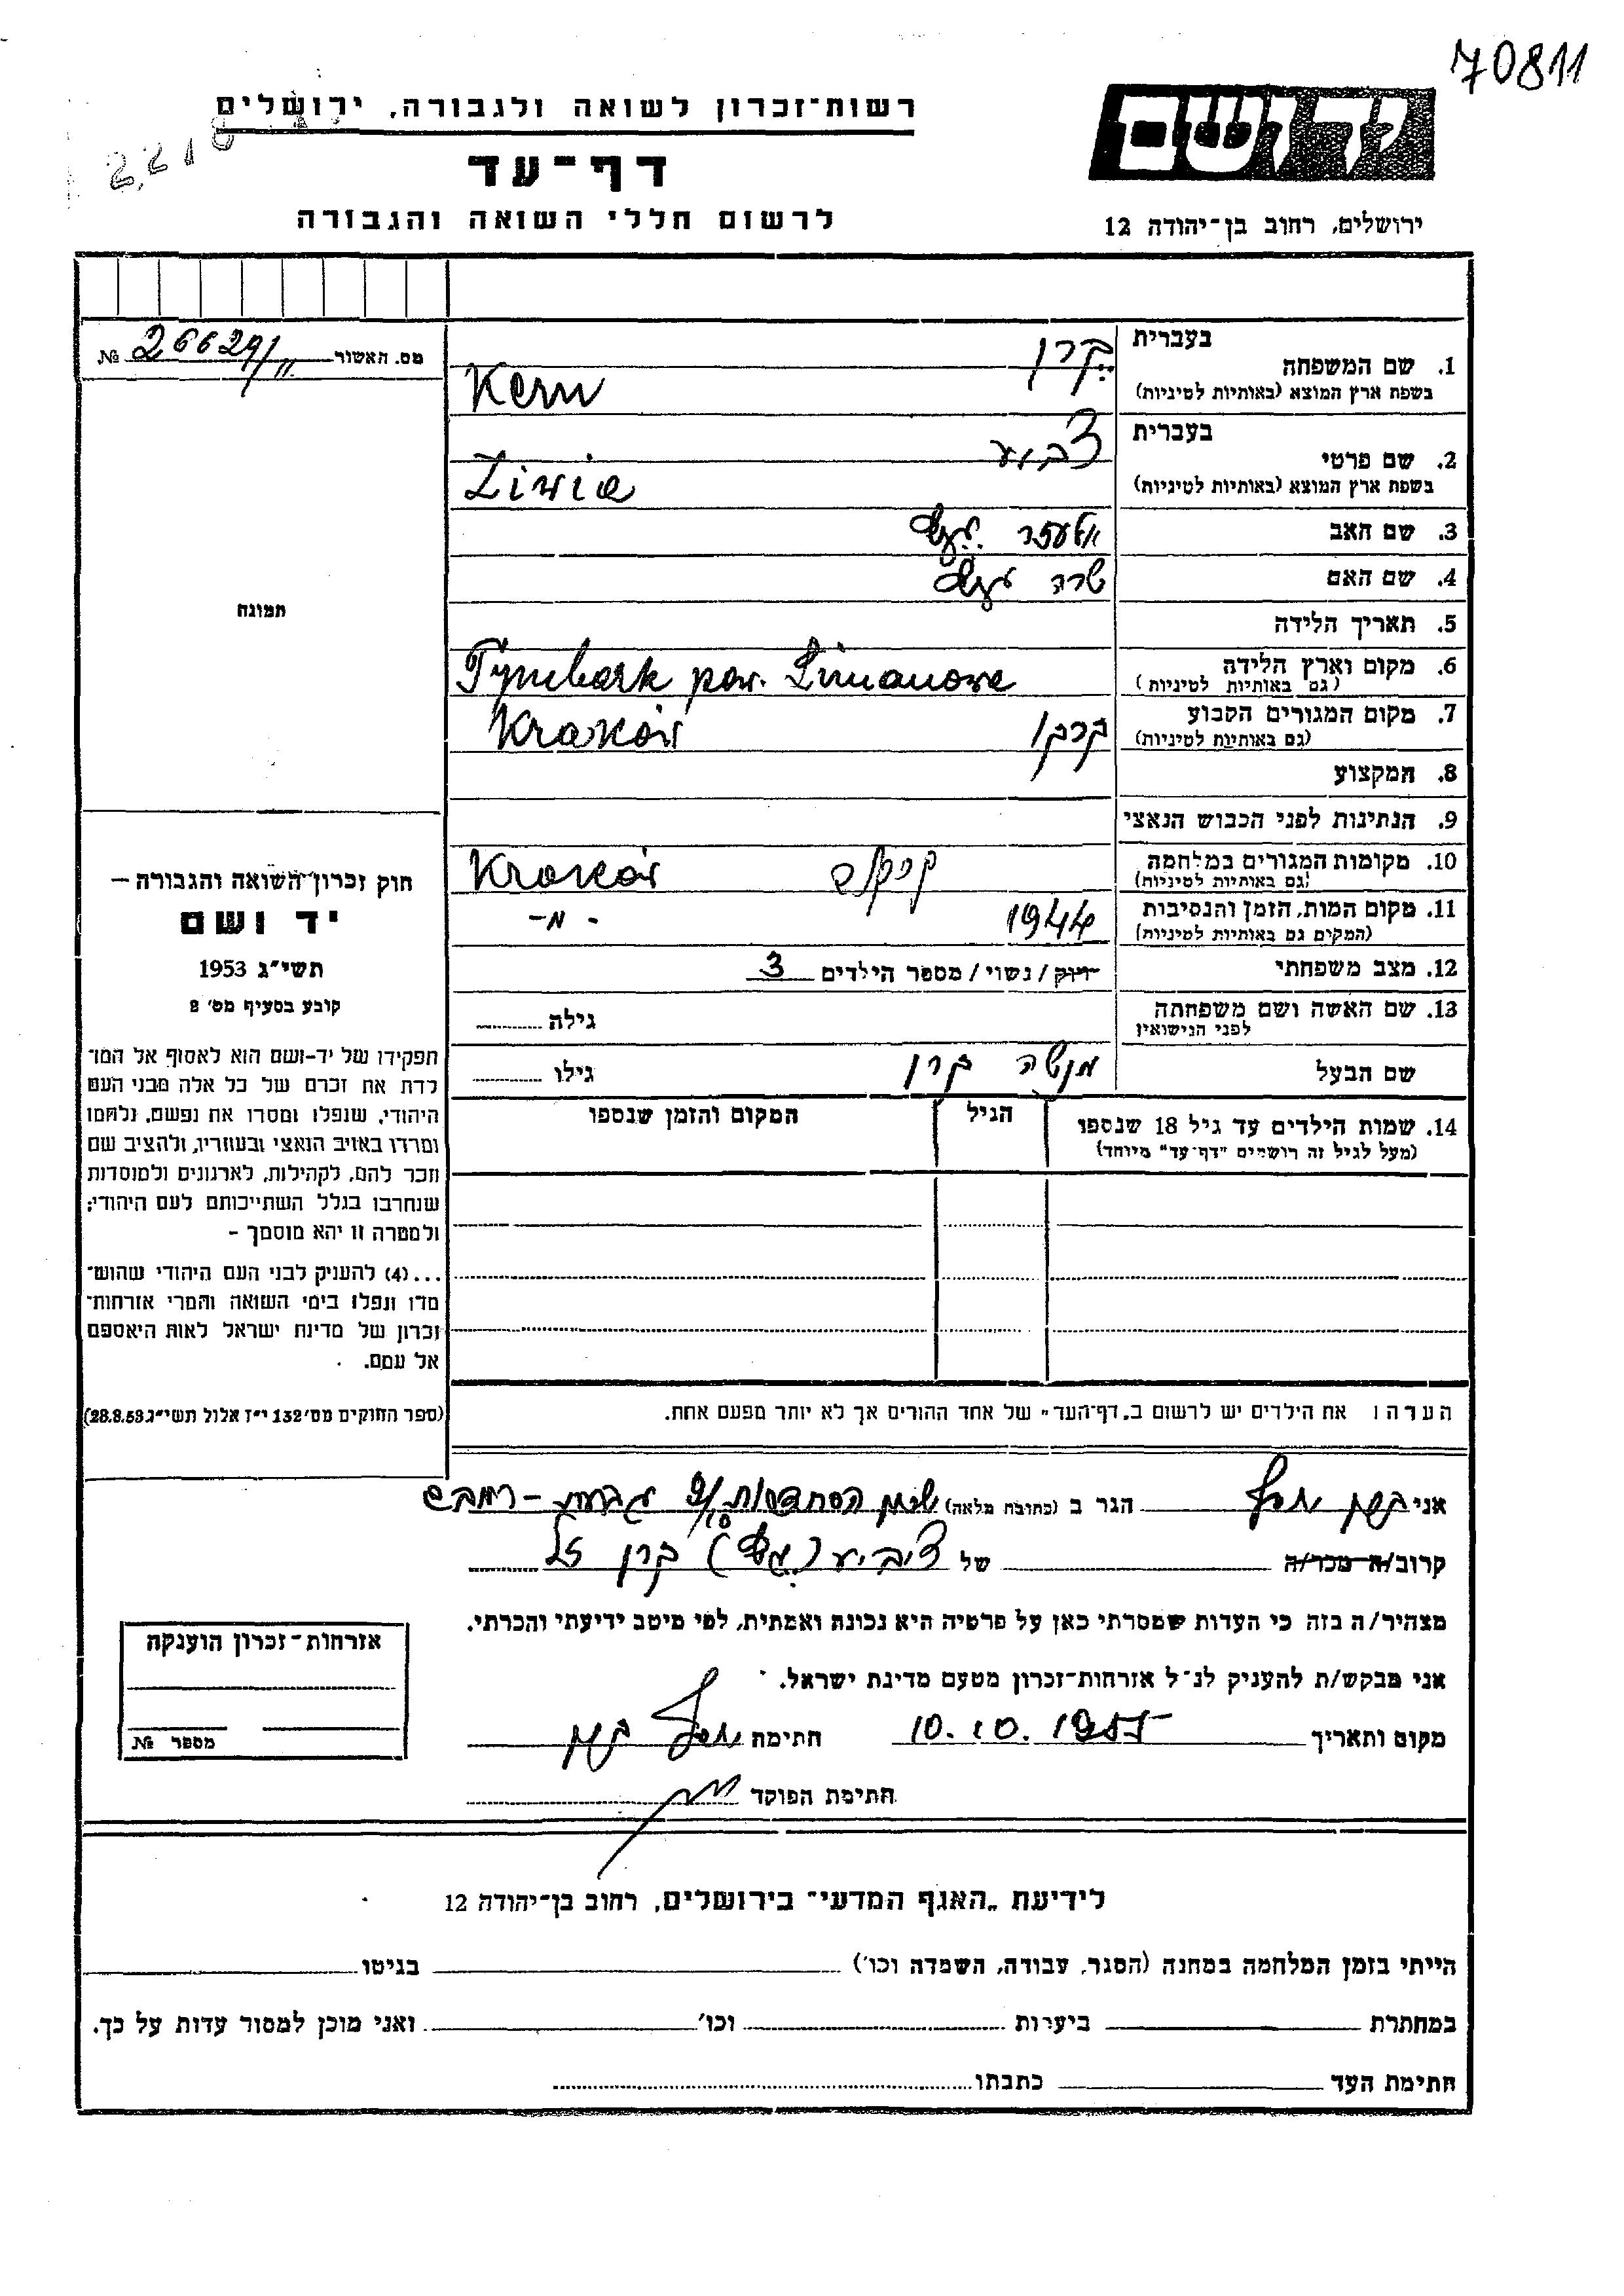 70811
רשות־זכרון לשואה ולגבורה, ירושלים
דף־עד
לרשום חללי השואה והגבורה
יד ושם
ירושלים, רחוב בן־יהודה 12
מס. האשור 26629/II №
1. שם המשפחה
בעברית קרן
בשפת ארץ המוצא (באותיות לטיניות) Kern
2. שם פרטי
בעברית
בשפת ארץ המוצא (באותיות לטיניות)
3. שם האב אלעזר
4. שם האם שרה
תמונה
5. תאריך הלידה
6. מקום וארץ הלידה Tymbark pow. Limanowa
(גם באותיות לטיניות)
7. מקום המגורים הקבוע Kraków
(גם באותיות לטיניות)
8. המקצוע
9. הנתינות לפני הכבוש הנאצי
10. מקומות המגורים במלחמה Kraków
(גם באותיות לטיניות)
11. מקום המות, הזמן והנסיבות 1944
(המקום גם באותיות לטיניות)
12. מצב משפחתי רווק / נשוי / מספר הילדים 3
13. שם האשה ושם משפחתה גילה
לפני הנישואין
שם הבעל מנשה קרן גילו
14. שמות הילדים עד גיל 18 שנספו הגיל המקום והזמן שנספו
(מעל לגיל זה רושמים "דף־עד" מיוחד)
חוק זכרון השואה והגבורה —
יד ושם
תשי"ג 1953
קובע בסעיף מס' 2
תפקידו של יד-ושם הוא לאסוף אל המו־
לדת את זכרם של כל אלה מבני העם
היהודי, שנפלו ומסרו את נפשם, נלחמו
ומרדו באויב הנאצי ובעוזריו, ולהציב שם
וזכר להם, לקהילות, לארגונים ולמוסדות
שנחרבו בגלל השתייכותם לעם היהודי;
ולמטרה זו יהא מוסמך -
...(4) להעניק לבני העם היהודי שהוש־
מדו ונפלו בימי השואה והמרי אזרחות־
זכרון של מדינת ישראל לאות היאספם
אל עמם.
(ספר החוקים מס' 132 י"ז אלול תשי"ג 28.8.53)
הערה: את הילדים יש לרשום ב„דף־העד" של אחד ההורים אך לא יותר מפעם אחת.
אני הגר ב (כתובת מלאה)
קרוב/ה מכר/ה של קרן ז"ל
מצהיר/ה בזה כי העדות שמסרתי כאן על פרטיה היא נכונה ואמתית, לפי מיטב ידיעתי והכרתי.
אני מבקש/ת להעניק לנ"ל אזרחות־זכרון מטעם מדינת ישראל.
מקום ותאריך 10.10.1955 חתימה
חתימת הפוקד
אזרחות־זכרון הוענקה
מספר №
לידיעת „האגף המדעי" בירושלים, רחוב בן־יהודה 12
הייתי בזמן המלחמה במחנה (הסגר, עבודה, השמדה וכו') בגיטו
במחתרת ביערות וכו' ואני מוכן למסור עדות על כך.
חתימת העד כתבתו